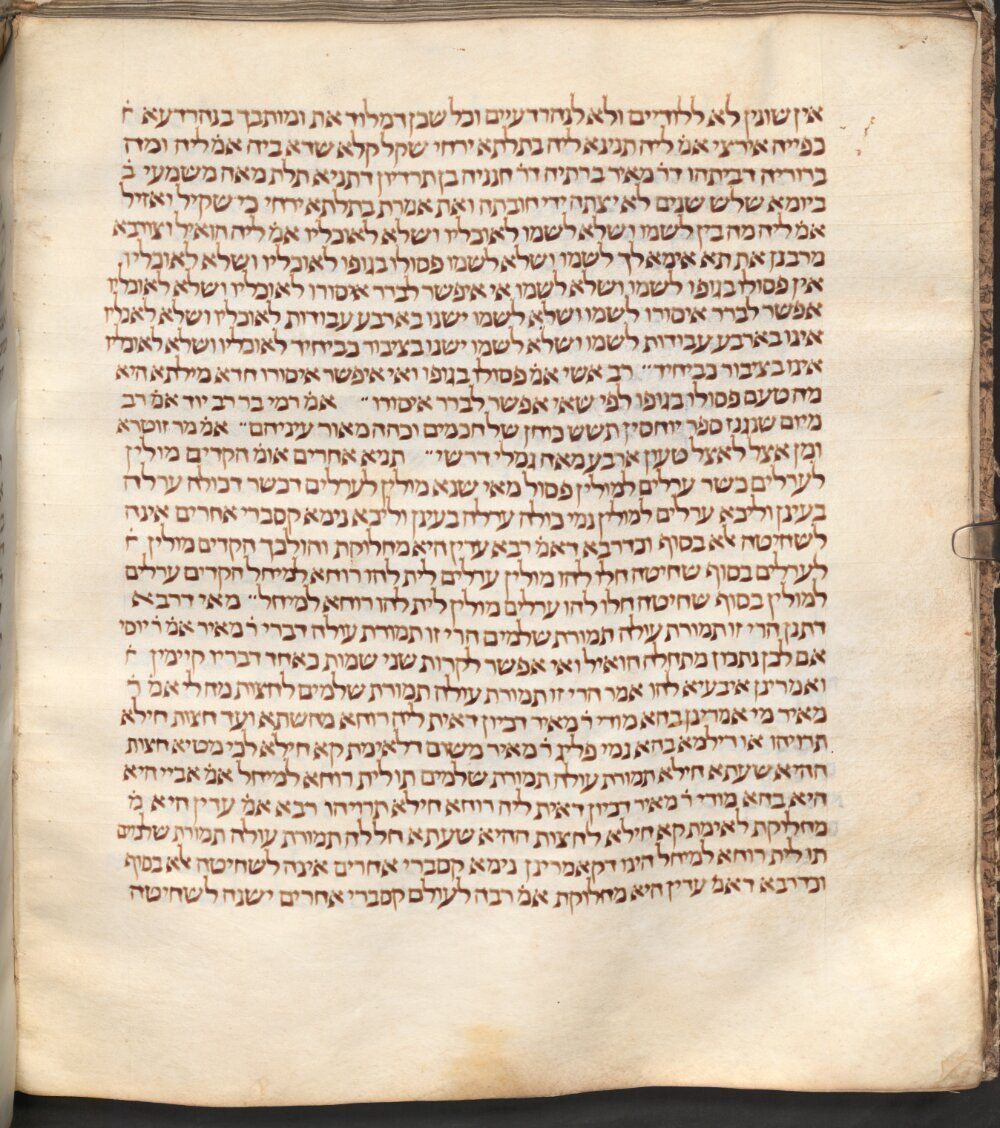 אין שונין לא ללודיים ולא לנהרדעיים וכל שכן דמלוד את ומותבך בנהרדעא ׄ
כפייה אירצי אמׄ ליה תנינא ליה בתלתא ירחי שקל קלא שדא ביה אמׄ ליה ומה
ברוריה דביתהו דרׄ מאיר ברתיה דרׄ חנניה בן תרדיון דתניא תלת מאה משמעי בׄ
ביומא שלש שנים לא יצתה ידי חובתה ואת אמרת בתלתא ירחי כי שקיל ואזיל
אמׄ ליה מה בין לשמו ושלא לשמו לאוכליו ושלא לאוכליו אמׄ ליה הואיל וצורבא
מרבנן את תא אימא לך לשמו ושלא לשמו פסולו בגופו לאוכליו ושלא לאוכליו
אין פסולו בגופו לשמו ושלא לשמו אי איפשר לברר איסורו לאוכליו ושלא לאוכליו
אפשר לברר איסורו לשמו ושלא לשמו ישנו בארבע עבודות לאוכליו ושלא לאכליו
אינו בארבע עבודות לשמו ושלא לשמו ישנו בציבור כביחיד לאוכליו ושלא לאוכליו
אינו בציבור כביחיד״ רב אשי אמׄ פסולו בגופו ואי איפשר איסורו חדא מילתא היא
מה טעם פסולו בגופו לפי שאי אפשר לברר איסורו״ אמׄ רמי בר רב יוד אמׄ רב
מיום שנגנז ספר יוחסין תשש כוחן של חכמים וכהה מאור עיניהם״ אמׄ מר זוטרא
ומן אצל לאצל טעין ארבע מאה גמלי דרשי״ תניא אחרים אומׄ הקדים מולין
לערלים כשר ערלים למולין פסול מאי שנא מולין לערלים דכשר דכולה ערלה
בעינן וליכא ערלים למולין נמי כולה ערלה בעינן וליכא נימא קסברי אחרים אינה
לשחיטה אלא בסוף וכדרבא דאמׄ רבא עדין היא מחלוקת והולכך הקדים מולין ׄ
לערלים בסוף שחיטה חלו להו מולין ערלים לית להו רוחא למיחל הקדים ערלים
למולין בסוף שחיטה חלו להו ערלים מולין לית להו רוחא למיחל״ מאי דרבא
דתנן הרי זו תמורת עולה תמורת שלמים הרי זו תמורת עולה דברי רׄ מאיר אמׄ רׄ יוסי
אם לכן נתכון מתחלה הואיל ואי אפשר לקרות שני שמות כאחד דבריו קיימין ׄ
ואמרינן איבעיא להו אמר הרי זו תמורת עולה תמורת שלמים לחצות מהו לי אמׄ רׄ
מאיר מי אמרינן בהא מודי רׄ מאיר דכיון דאית ליה רוחא מהשתא ועד חצות חילא
תרויהו או דילמא בהא נמי פליג רׄ מאיר משום דלאימת קא חילא לכי מטיא חצות
ההיא שעתא חילא תמורת עולה תמורת שלמים תו לית רוחא למיחל אמׄ אביי היא
היא בהא מודי רׄ מאיר דכיון דאית ליה רוחא חילא תרויהו רבא אמׄ עדין היא מׄ
מחלוקת לאימת קא חילא לחצות ההיא שעתא חללה תמורת עולה תמורת שלמים
תו לית רוחא למיחל הינו דקאמרינן נימא קסברי אחרים אינה לשחיטה אלא בסוף
וכדרבא דאמׄ עדין היא מחלוקת אמׄ רבה לעולם קסברי אחרים ישנה לשחיטה